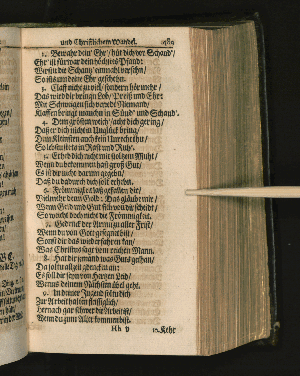 und Christlichem Wandel. 989
1. Bewahr dein Ehr/ hüt dich vor Schand/
Ehr ist fürwar dein höchstes Pfand:
Wirst die Schantz einmahl versehn/
So ists umb deine Ehr geschehn.
3. Claff nicht zu viel/ sondern hör mehr/
Das wird dir bringen Lob/ Preiß und Ehr:
Mit Schweigen sich verredt Niemand/
Klaffen bringt manchen in Sünd und Schand.
4. Dem grössern weich/ acht dich gering/
Daß er dich nicht in Unglück bring/
Dem Kleinsten auch kein Unrecht thu/
So lebstu stets in Rast und Ruh.
5. Erheb dich nicht mit stoltzem Muht/
Wenn du bekommen hast groß Gut/
Es ist dir nicht darum gegeben/
Daß du dadurch dich solt erheben.
6. Frömmigkeit laß gefallen dir/
Vielmehr denn Gold: Das gläub mir/
Wenn Geld und Gut sich von dir scheidt/
So weicht doch nicht die Frömmigkeit.
7. Gedenck der Armen zu aller Frist/
Wenn du von Gott gesegnet bist/
Sonst dir das wiederfahren kan/
Was Christus sagt vom reichen Mann.
8. Hat dir jemand was Guts gethan/
Da solt allzeit gedencken an:
Es soll dir seyn von Hertzen Leid/
Wenns deinem Nächsten übel geht.
9. In deiner Jugend solt dich
Zur Arbeit halten fleissiglich/
Hernach gar schwer die Arbeit ist/
Wenn du zum Alter kommen bist.
10. Kehr